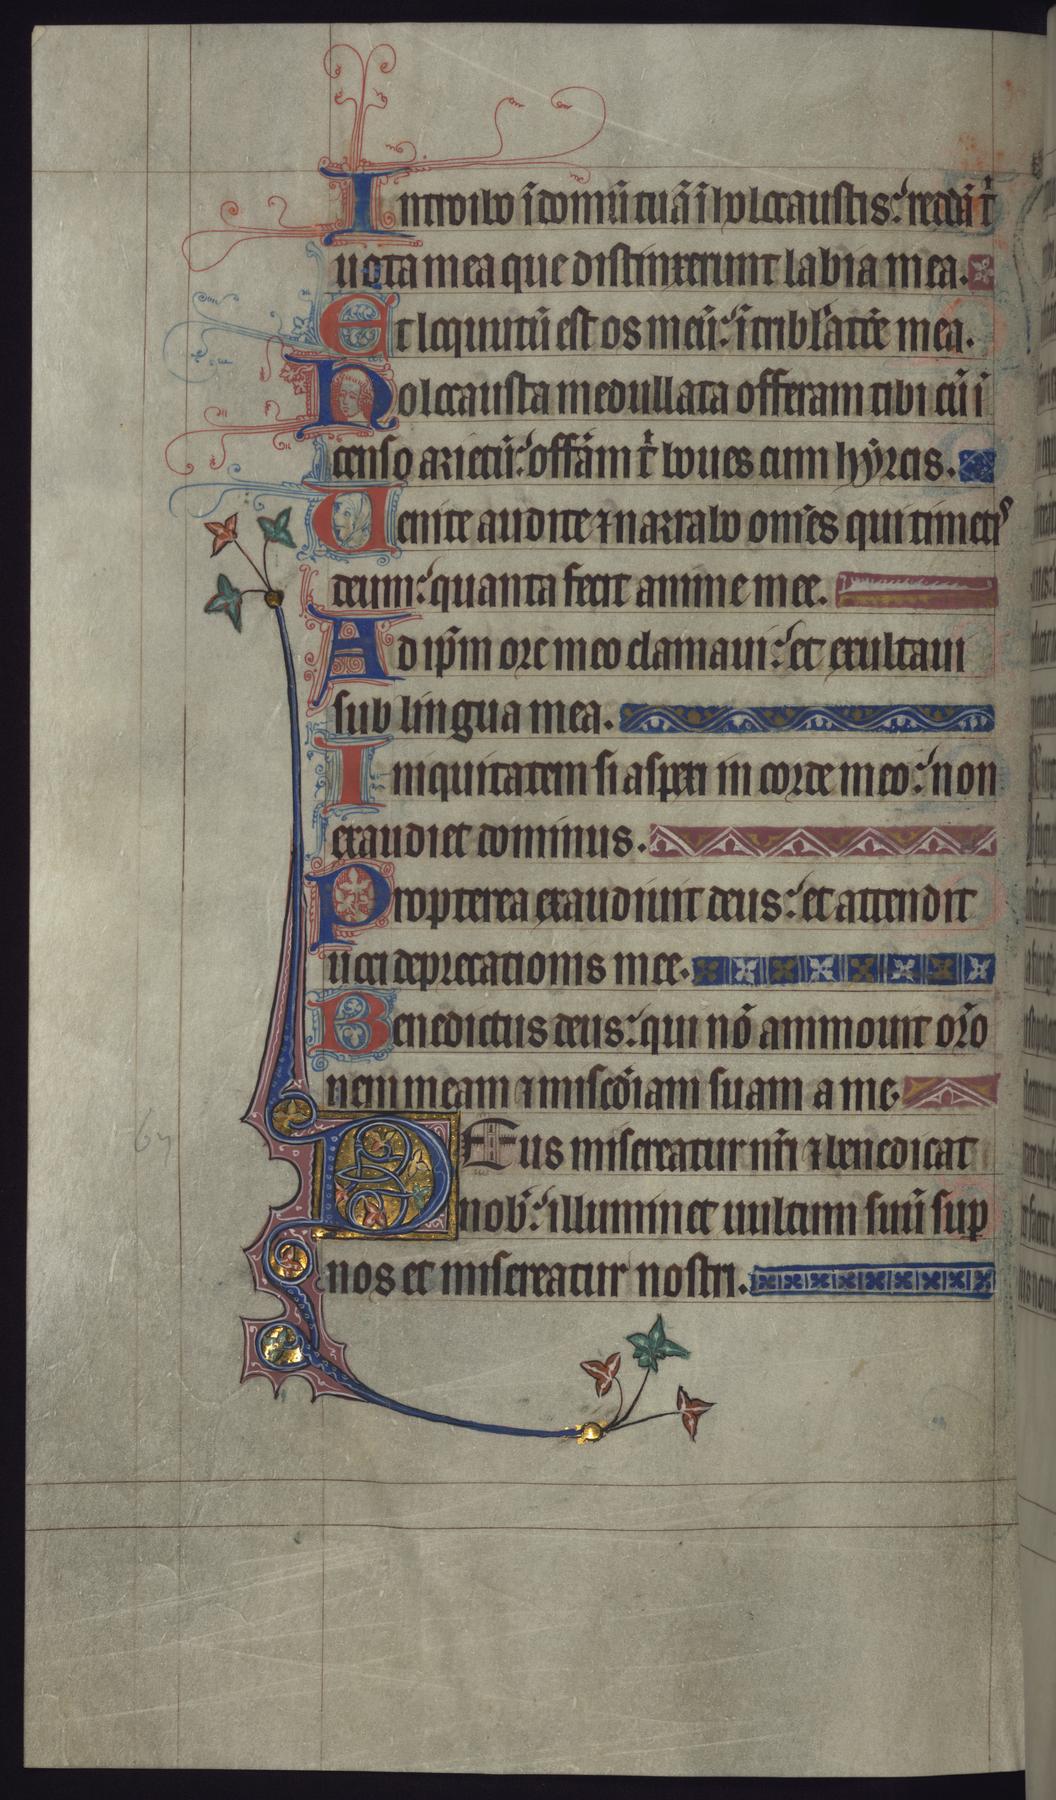 Introibo ī domū tuā ī holocaustis: reddā t̄
uota mea que distinxerunt labia mea.
Et locutū est os meū: ī tribl'atōe mea.
Holocausta medullata offeram tibi cū ī
censo arietū: offām t̄ boues cum hyrcis.
Uenite audite ⁊ narrabo om̄es qui timetis
deum: quanta fecit anime mee.
Ad ip̄m ore meo clamaui: et exultaui
sub lingua mea.
Iniquitatem si aspexi in corde meo: non
exaudiet dominus.
Propterea exaudiuit deus: et attendit
uoci deprecationis mee.
Benedictus deus: qui nō ammouit orō
nem meam ⁊ misc̄diam suam a me.
Deus misereatur nr̄i ⁊ benedicat
nob': illuminet uultum suū sup
nos et misereatur nostri.
64